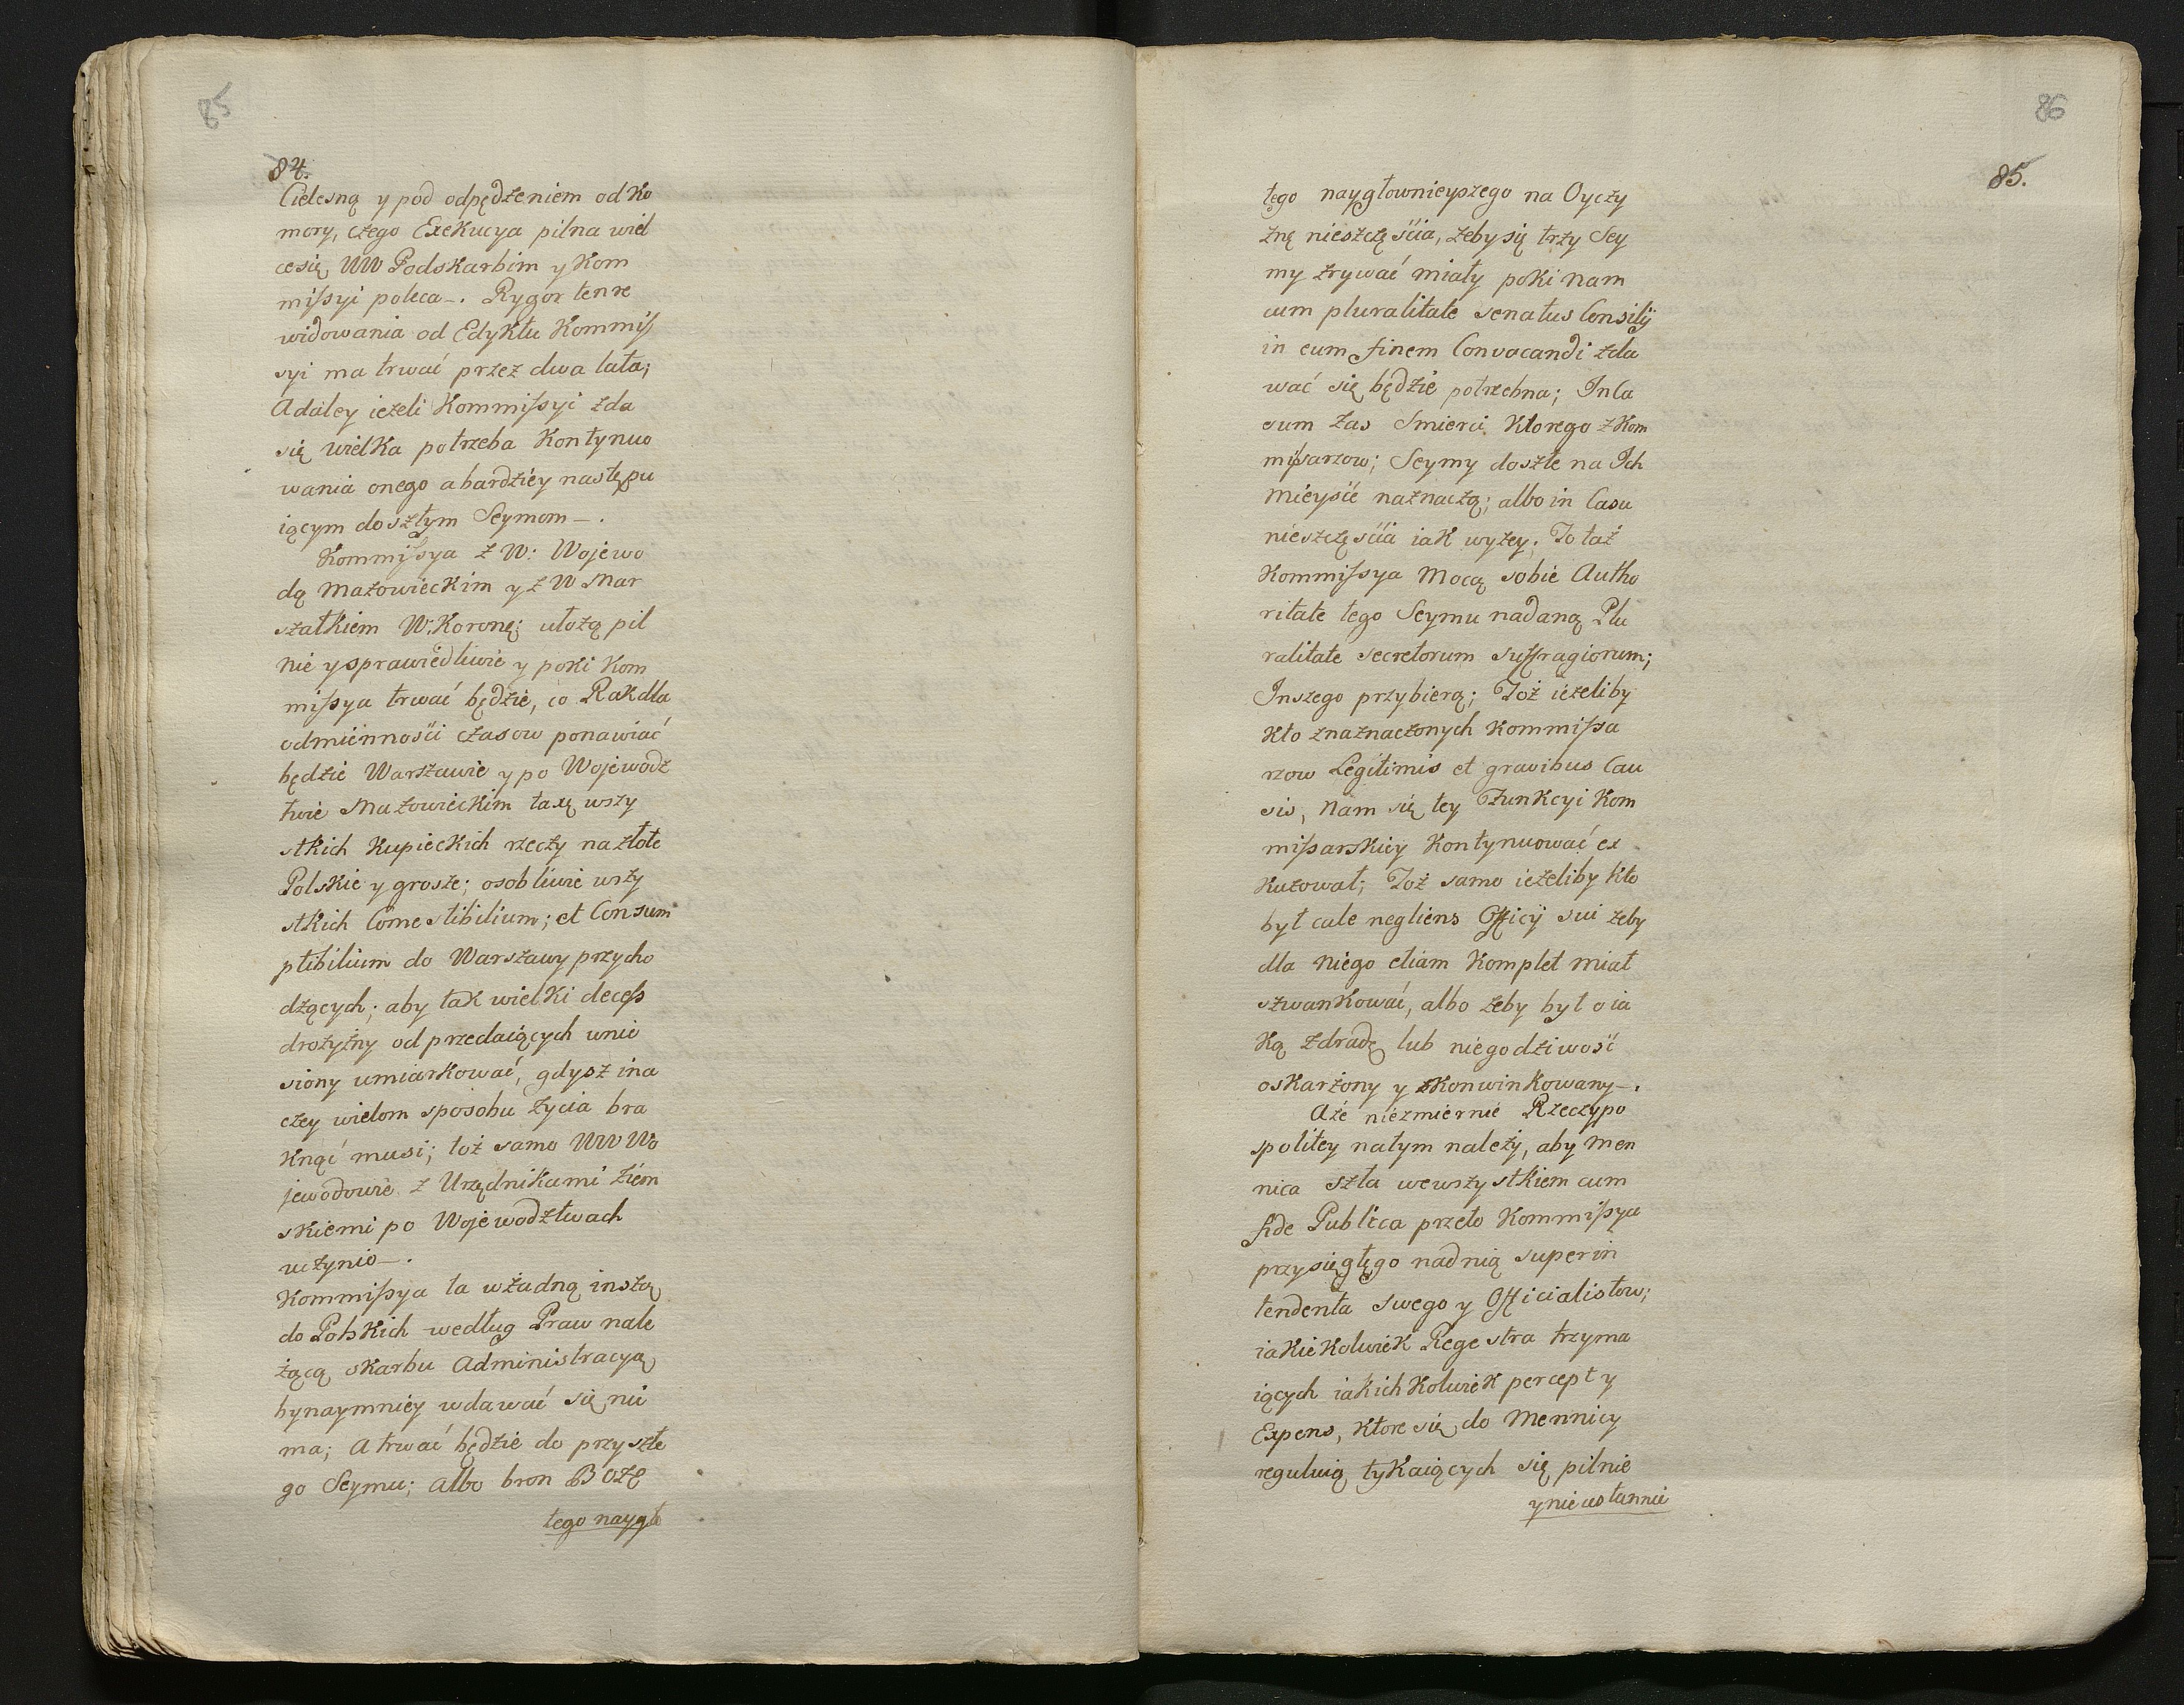 85
84.
Cielesną y pod odpędzeniem od Ko
mory, czego Exekucya pilna wiel
ce się WW Podskarbim y Kom
missyi poleca_. Rygor ten re
widowania od Edyktu Kommis
syi ma trwać przez dwa lata;
A daley ieżeli Kommissyi zda
się wielka potrzeba Kontynuo
wania onego a bardziey następu
iącym doszłym Seymom_.
Kommissya z W: Wojewo
dą Mazowieckim y z W Mar
szałkiem W: Koronę; ułożą pil
nie y sprawiedliwie y poki Kom
missya trwać będzie, co Rak dla
odmienności czasow ponawiać
będzie Warszawie y po Wojewodz
twie Mazowieckim taxę wszy
stkich Kupieckich rzeczy na złote
Polskie y grosze; osobliwie wszy
stkich Comestibilium; et Consum
ptibilium do Warszawy przycho
dzących; aby tak wielki decess
drożyzny od przedaiących unie
siony umiarkować, gdysz ina
czey wielom sposobu życia bra
knąć musi; toż samo WW Wo
jewodowie z Urzędnikami Ziem
skiemi po Wojewodztwach
uczynio_.
Kommissya ta w żadną inszą
do Polskich według Praw nale
żącą skarbu Administracyą
bynaymniey wdawać się nie
ma; A trwać będzie do przyszłe
go Seymu; albo bron Boże
tego naygł
86
85.
tego naygłownieyszego na Oyczy
znę nieszczęścia, żeby się trzy Sey
my zrywać miały poki nam
cum pluralitate senatus Consilij
in eum finem Convocandi zda
wać się będzie potrzebna; In Ca
sum zas Smierci Ktorego z Kom
missarzow; Seymy doszłe na Ich
mieysce naznaczą; albo in Casu
nieszczęścia iak wyżey. To taż
Kommissya Mocą sobie Autho
ritate tego Seymu nadaną Plu
ralitate secretorum suffragiorum;
Inszego przybierą; Toż ieżeliby
Kto z naznaczonych Kommissa
rzow Legitimis et gravibus Cau
sis, Nam się tey Funkcyi Kom
missarskiey Kontynuować ex
kuzował; Toż samo ieżeliby Kto
był cale negliens Officij sui żeby
dla niego etiam Komplet miał
szwankować, albo żeby był o ia
Ką zdradę lub niegodziwość
oskarżony y skonwinkowany_.
Aże niezmiernie Rzeczypo
spolitey na tym należy, aby Men
nica szła we wszystkiem cum
fide Publica przeto Kommissya
przysięgłego nad nią superin
tendenta swego y Officialistow;
iakiekolwiek Regestra trzyma
iących iakichkolwiek percept y
Expens, Ktore się do Mennicy
reguluią tykaiących się pilnie
y nieustannie